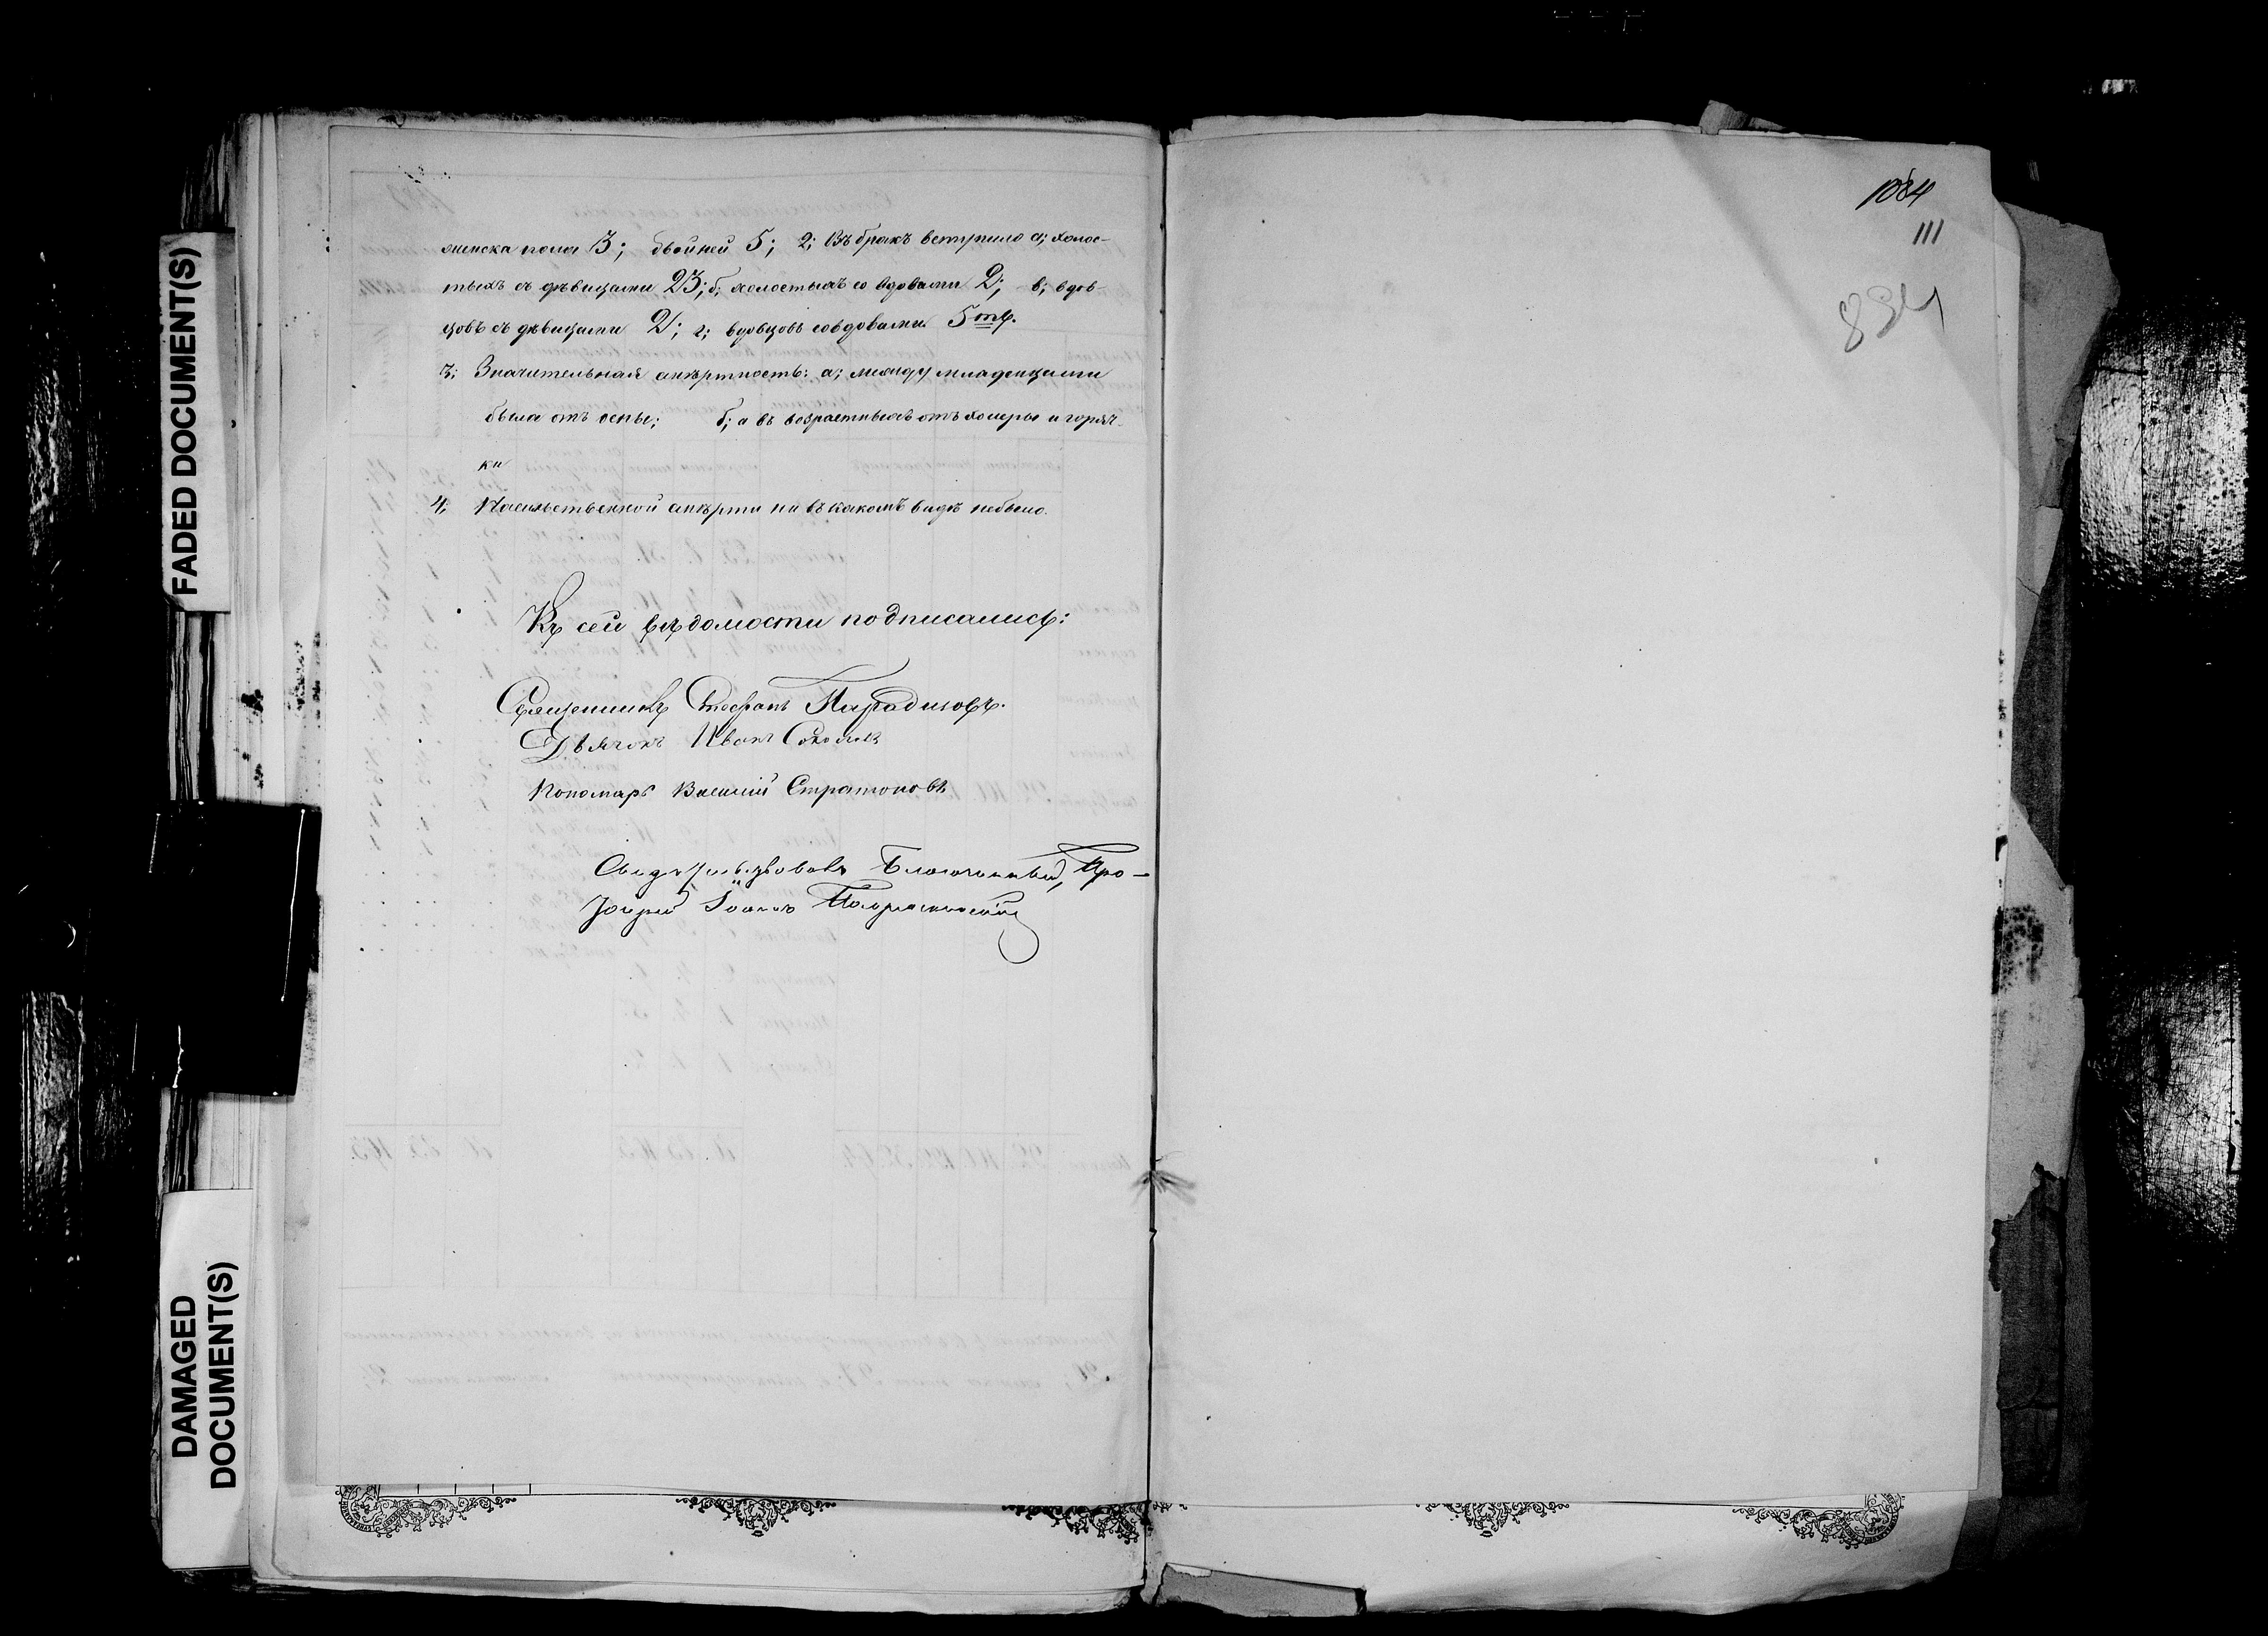 FADED DOCUMENT(S)
DAMAGED
DOCUMENT(S)
женска пола 3; двойней 5; 2; Въ бракъ вступило а; холос-
тыхъ съ дѣвицами 23; б; холостыхъ со вдовами 2; в; вдов-
цовъ съ дѣвицами 2; г; вдовцовъ совдовами 5ть.
3; Значительная смѣртность: а; между младенцами
была отъ оспы; б; а въ возрастныхъ отъ холеры и горяч-
ки
4; Насильственной смѣрти ни въ какомъ видѣ небыло.
Къ сей вѣдомости подписались:
Священникъ Стефанъ Парадизовъ.
Дьячокъ Иванъ Соколовъ
Пономарь Василій Стратоновъ
Свидѣтельствовалъ Благочинный, Про-
Іоаннъ
1084
111